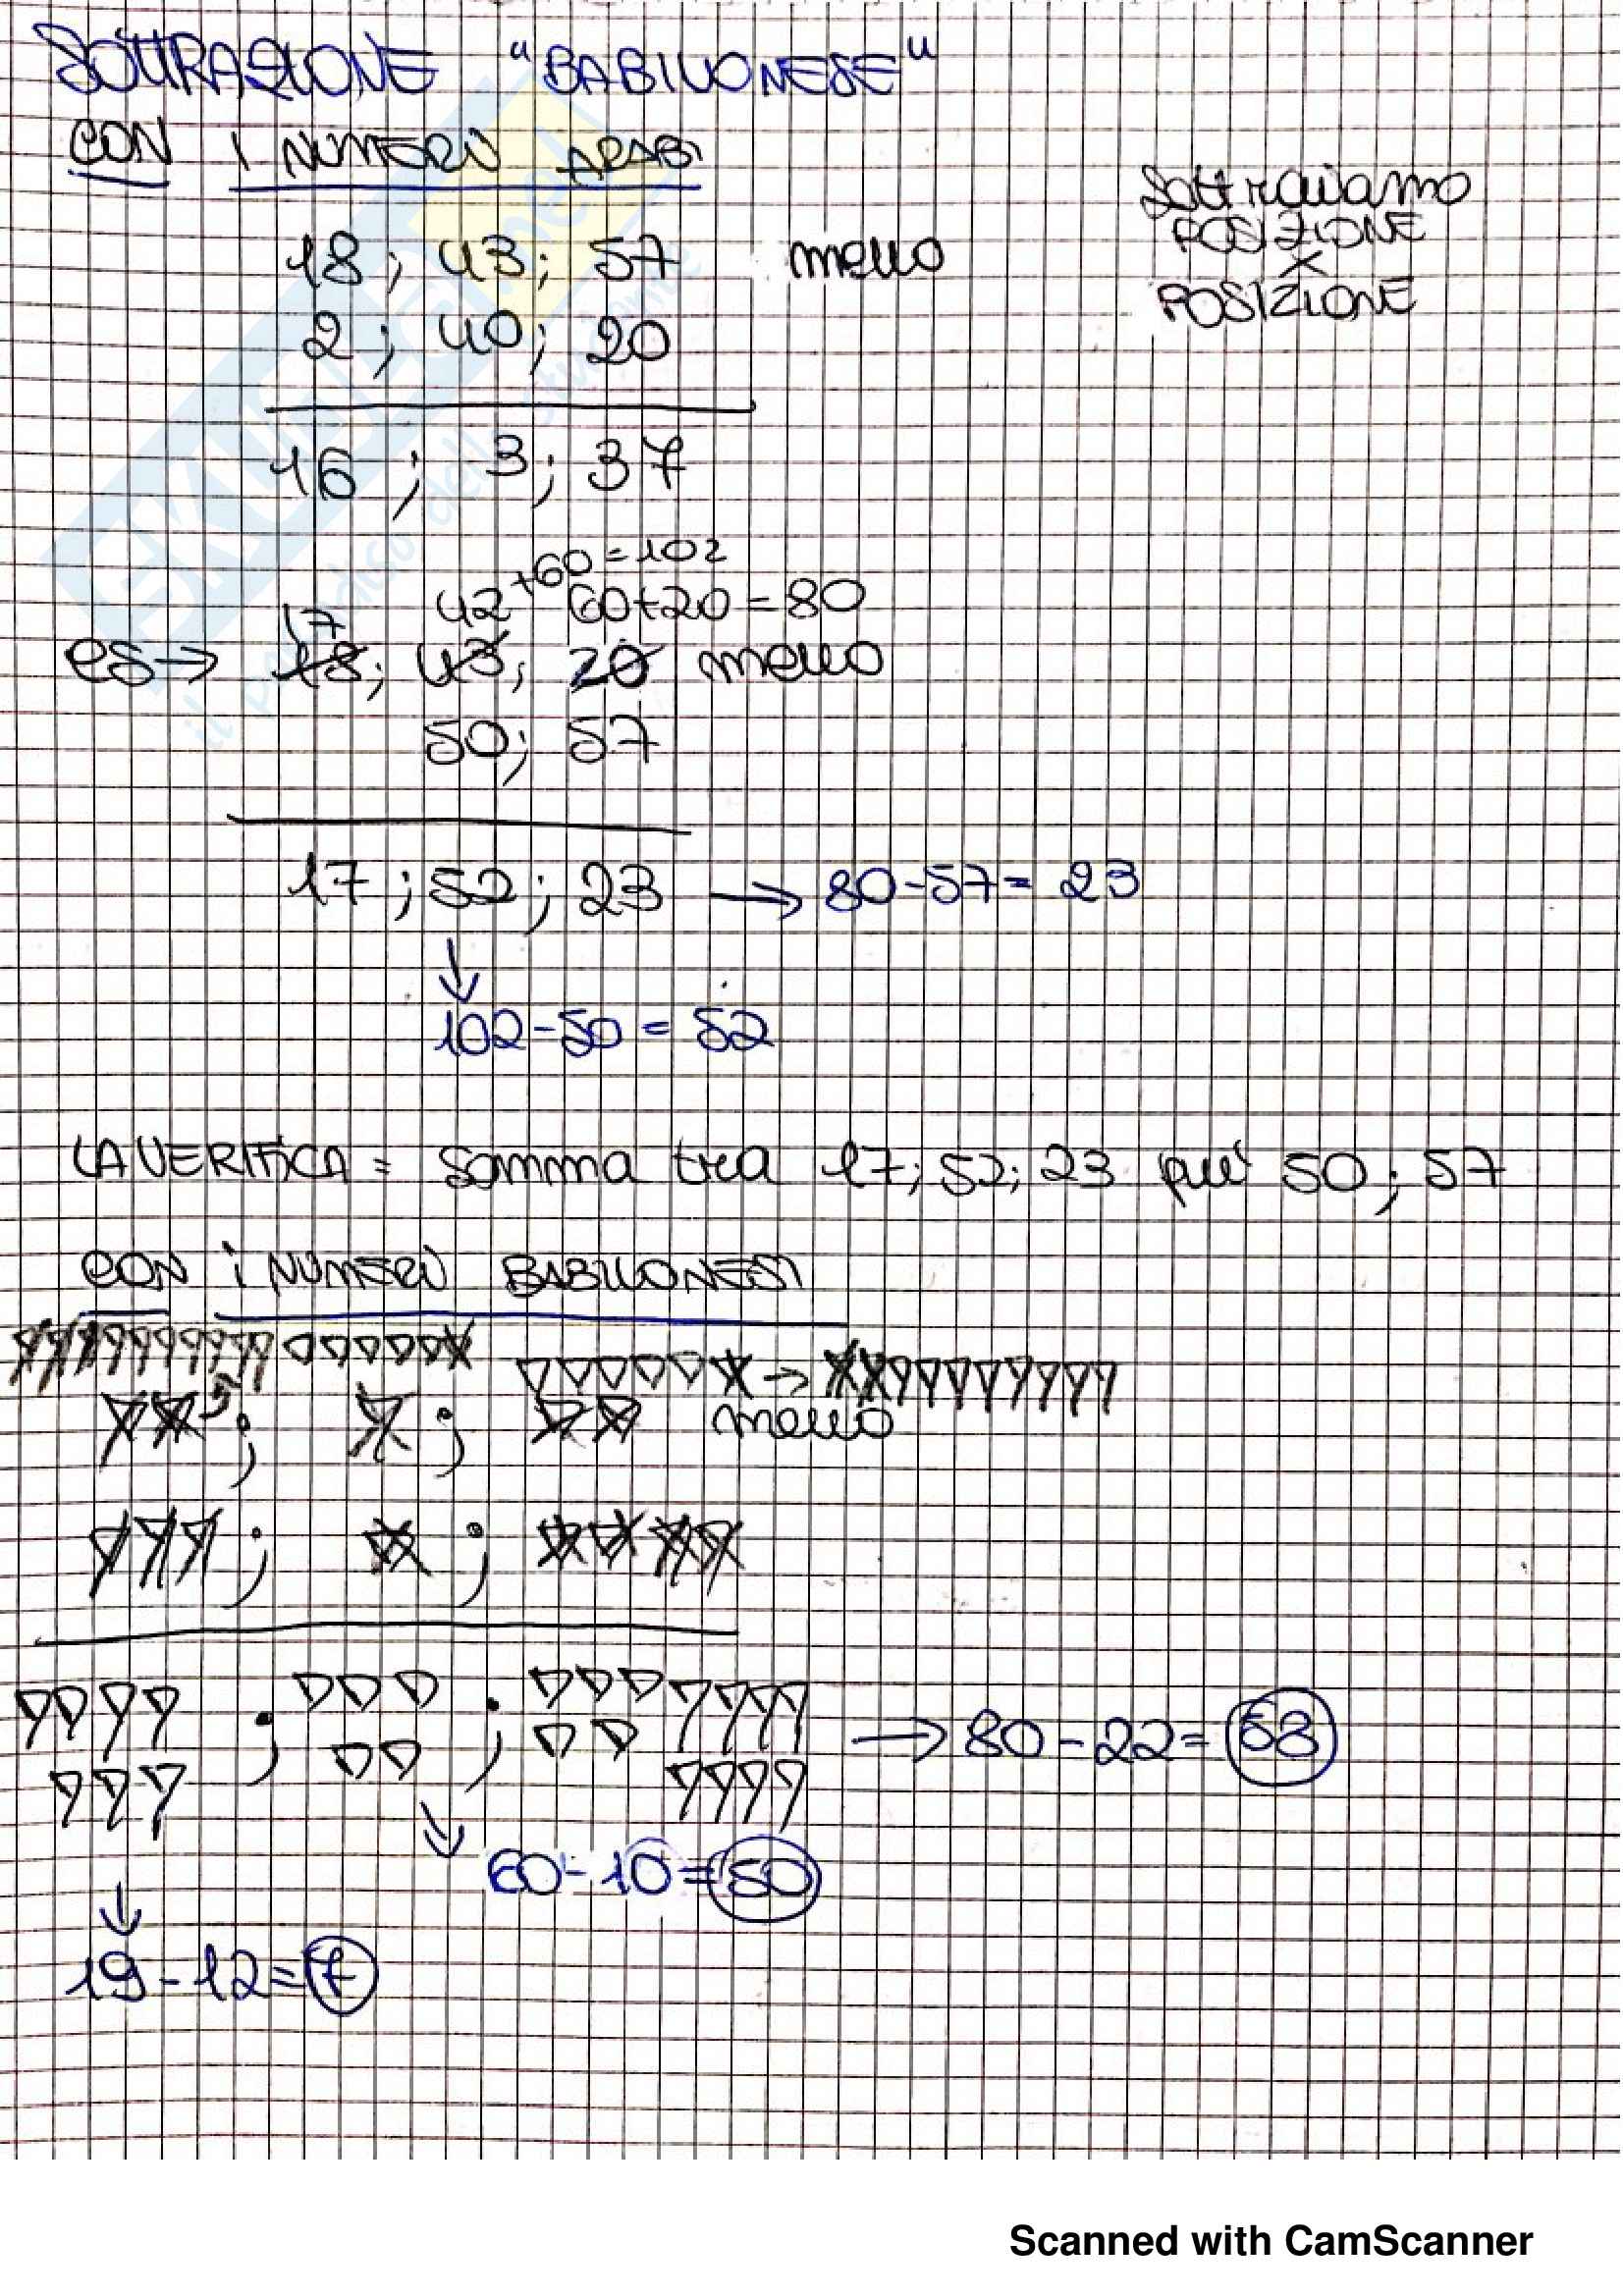 SOTTRAZIONE "BABILONESE"
CON I NUMERI ARABI
Sottraiamo
POSIZIONE
X
POSIZIONE
18; 43; 57 meno
2; 40; 20
16; 3; 37
+60=102
17 42 60+20=80
es→ 18; 43; 20 meno
50; 57
17; 52; 23 → 80-57= 23
↓
102-50= 52
LA VERIFICA = somma tra 17; 52; 23 più 50; 57
CON I NUMERI BABILONESI
meno
→ 80-22= 58
60-10=50
19-12=7
Scanned with CamScanner